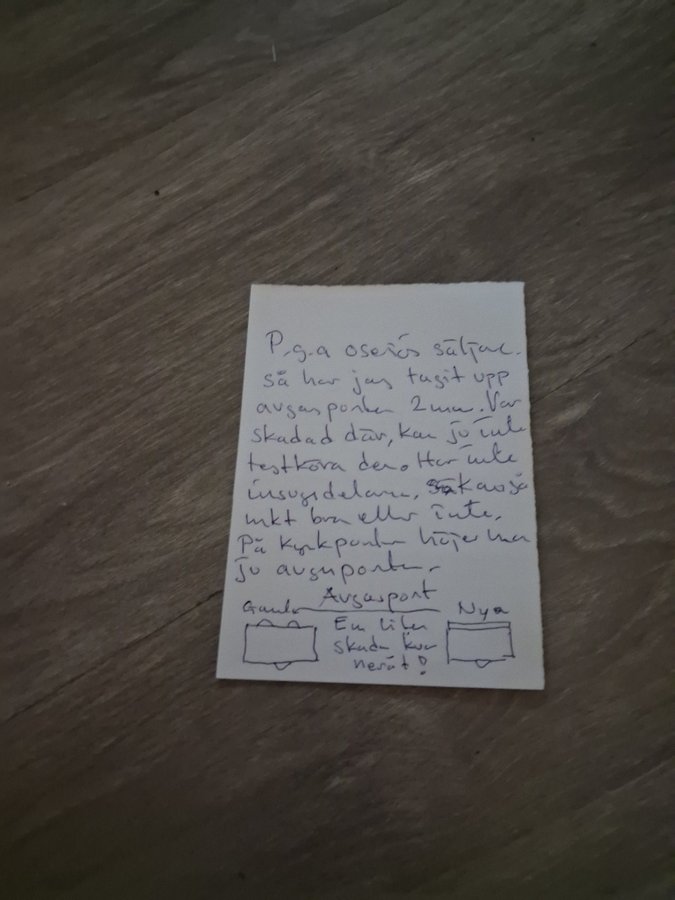 P.g.a oseriös säljare.
så har jag tagit upp
avgasporten 2mm. Var
skadad där, kan ju inte
testköra den. Har inte
insugsdelarna, kan gå
mkt bra eller inte.
På kyrkporten höjer man
ju avgasporten.
Avgasport
Gamla
Nya
En liten
skada kvar
neråt!